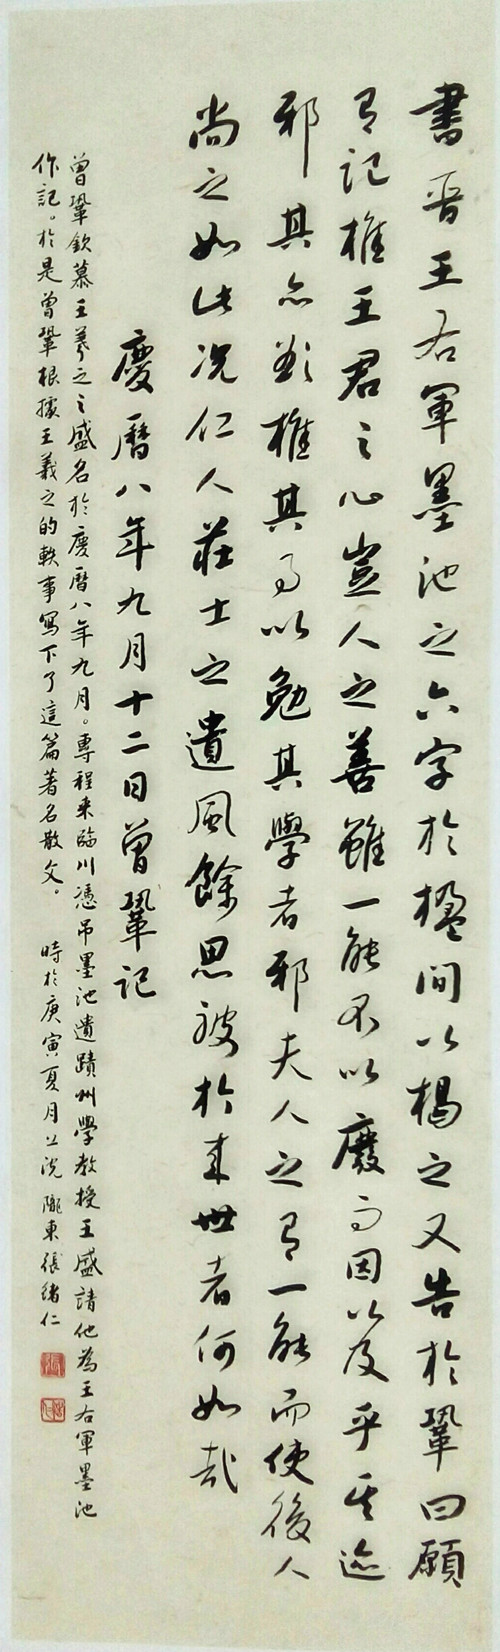 書晉王右軍墨池之六字於楹間以揭之又告於鞏曰願
有記推王君之心豈人之善雖一能不以廢而因以及乎其迹
邪其亦欲推其事以勉其學者邪夫人之有一能而使後人
尚之如此況仁人莊士之遺風餘思被於來世者何如哉
慶曆八年九月十二日曾鞏記
曾鞏欽慕王羲之之盛名於慶曆八年九月。專程來臨川憑吊墨池遺蹟州學教授王盛請他為王右軍墨池
作記。於是曾鞏根據王羲之的軼事寫下了這篇著名散文。 時於庚寅夏月上浣 隴東張緒仁